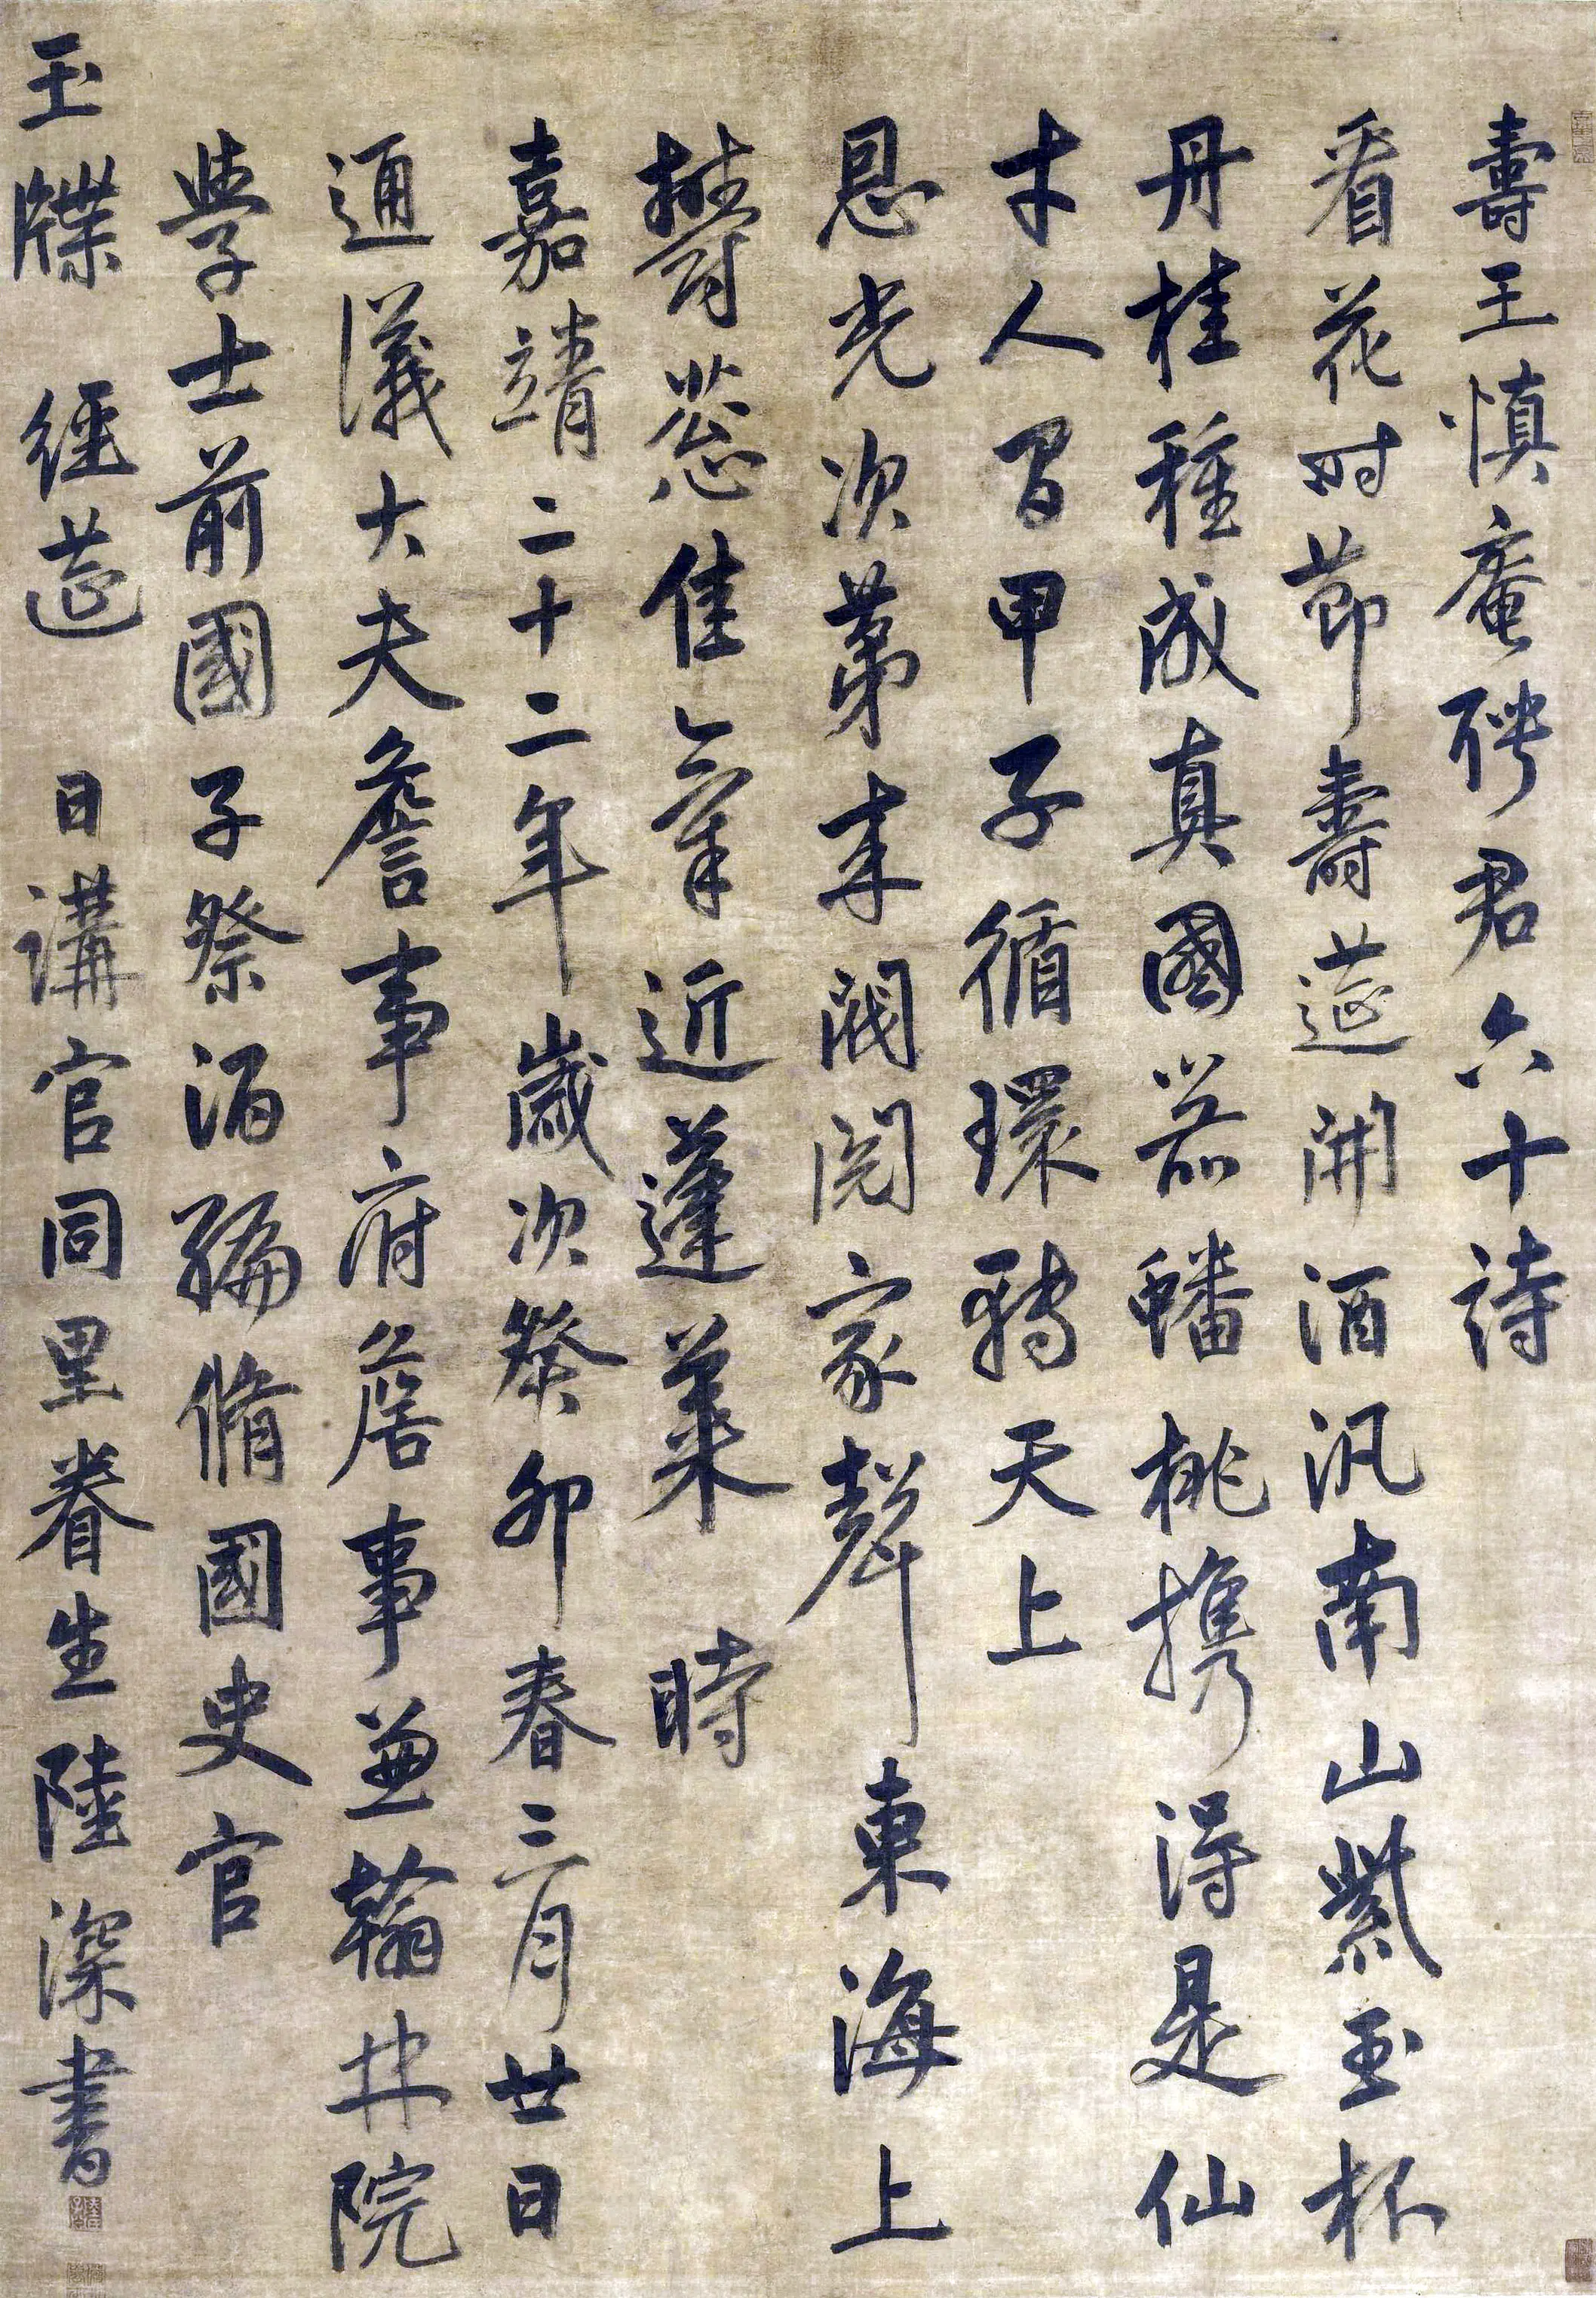 壽王慎庵聘君六十詩
看花时節壽筵開酒汎南山紫玉杯
丹桂種成真國器蟠桃携得是仙
才人間甲子循環轉天上
恩光次第来閥閱家聲東海上
鬱葱佳氣近蓬萊 時
嘉靖二十二年歲次癸卯春三月廿日
通議大夫詹事府詹事兼翰林院
學士前國子祭酒編脩國史官
玉牒 經筵 日講官同里眷生陸深書